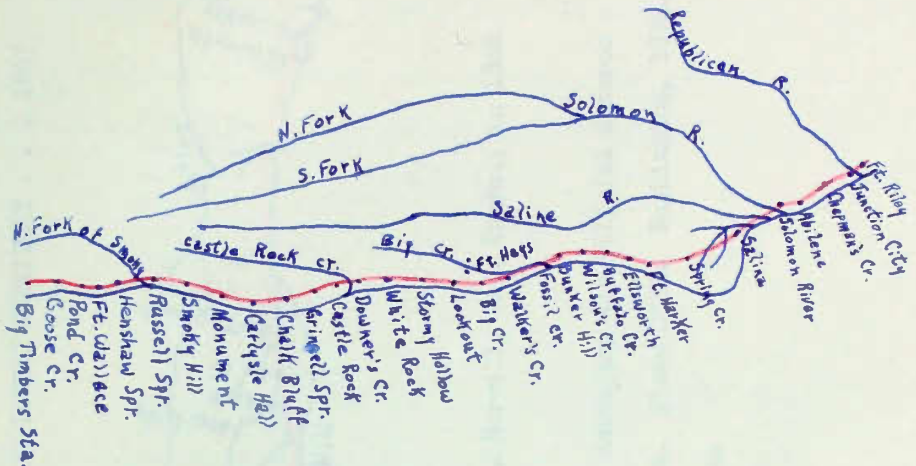 Republican R.
N. Fork
Solomon R.
S. Fork
Saline R.
N. Fork of Smoky
Castle Rock Cr.
Big Cr.
Ft. Hays
Big Timbers Sta.
Goose Cr.
Pond Cr.
Ft. Wallace
Henshaw Spr.
Russell Spr.
Smoky Hill
Monument
Carlysle Hall
Chalk Bluff
Gringell Spr.
Castle Rock
Downer's Cr.
White Rock
Stormy Hollow
Lookout
Big Cr.
Walker's Cr.
Fossil Cr.
Bunker Hill
Wilson's Cr.
Buffalo Cr.
Ellsworth
Ft. Harker
Spring Cr.
Salina
Solomon River
Abilene
Chapman's Cr.
Junction City
Ft. Riley